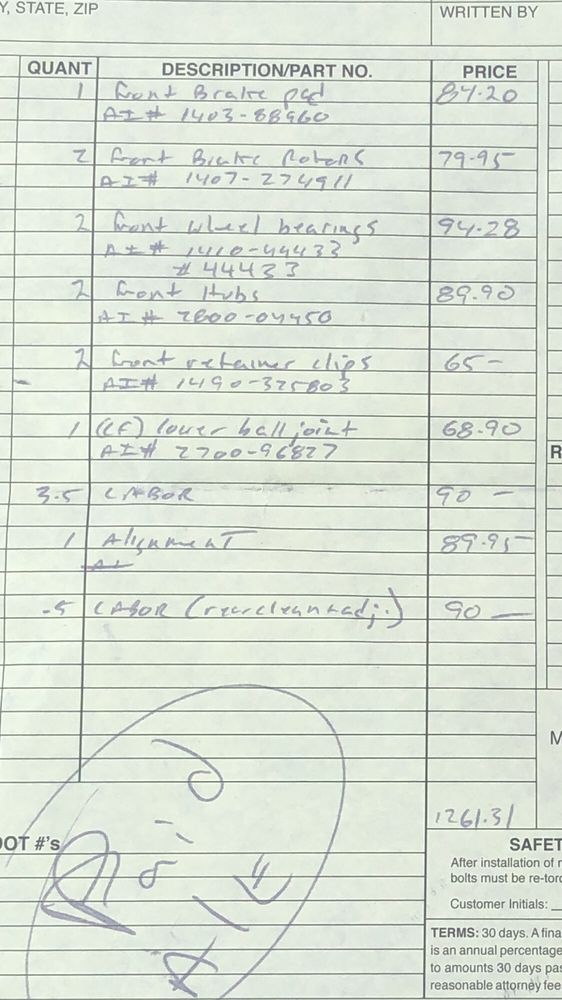 Y, STATE, ZIP
WRITTEN BY
QUANT DESCRIPTION/PART NO. PRICE
1 front Brake pad 84.20
AI# 1403-88960
2 front Brake Rotors 79.95
AI# 1407-274911
2 front wheel bearings 94.28
AI# 1410-44433
#44433
2 front Hubs 89.90
AI# 2800-04450
2 front retainer clips 65-
AI# 1490-325803
1 (LF) lower ball joint 68.90
AI# 2700-96827
3.5 LABOR 90 -
1 Alignment 89.95
.5 LABOR (rear clean + adj.) 90 -
R
M
1261.31
OOT #'s
SAFET
After installation of r
bolts must be re-torc
Customer Initials:
TERMS: 30 days. A fina
is an annual percentage
to amounts 30 days pas
reasonable attorney fee
Paid